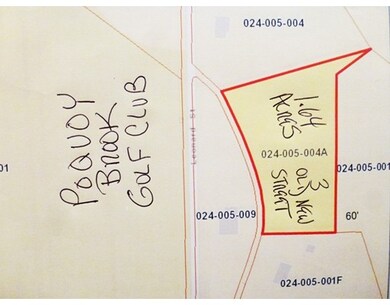 024-005-004
POQUOY
BROOK
GOLF CLUB
Leonard St
1.64
ACRES
024-005-004A
01
024-005-001
3
OLD NEW
STREET
024-005-009
60'
024-005-001F